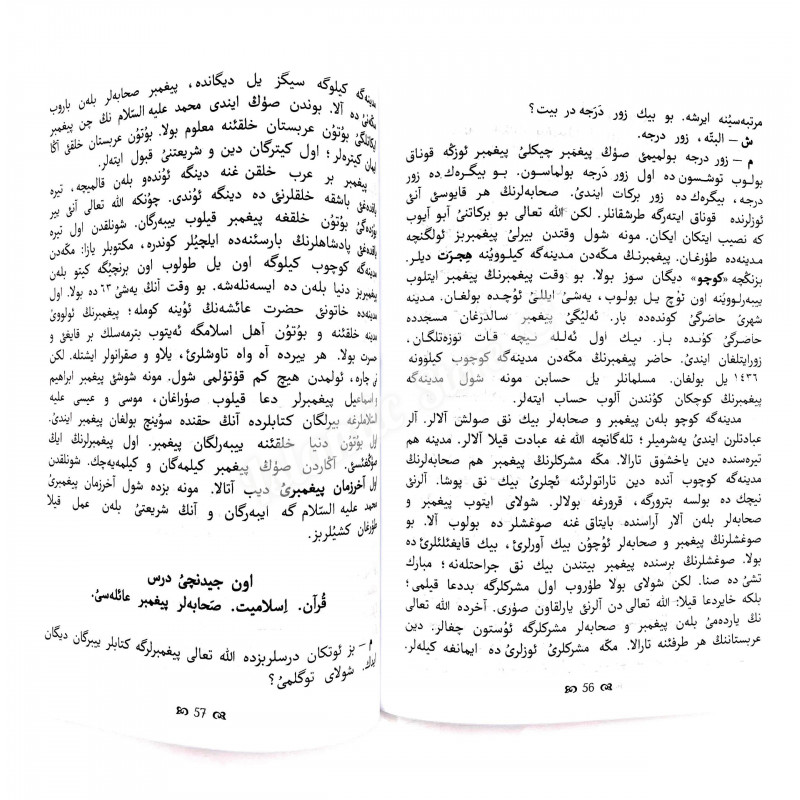 مرتبه‌سیُنه ایرشه. بو بیك زور دَرَجه در بیت؟
ش – البتّه، زور درجه.
م – زور درجه بولمیمیُ صوُڭ پیغمبر چیكلیُ پیغمبر ئوزڭه قوناق
بولوب توشسون ده اول زور دَرجه بولماسون. بو بیگره‌ك ده زور
درجه، بیگره‌ك ده زور بركات ایندیُ. صحابه‌لرنڭ هر قایوسیُ آنیُ
ئوزلرنده قوناق ایته‌رگه طرشقانلر. لكن الله تعالی بو بركاتنیُ أبو آیوب
كه نصیب ایتكان ایكان. مونه شول وقتدن بیرلیُ پیغمبربز ئولگنچه
مدینه‌ده طوُرغان. پیغمبرنڭ مكّه‌دن مدینه‌گه كیلووینه هِجرَت دیلر.
بزنكچه «كوچو» دیگان سوز بولا. بو وقت پیغمبرنڭ پیغمبر ایتلوب
ییبه‌رلووینه اون ئوُچ یل بولوب، یه‌شیُ ایللیُ ئوُچده بولغان. مدینه
شهریُ حاضرگیُ كونده‌ده بار. ئه‌لیُگیُ پیغمبر سالدرغان مسجدده
حاضرگیُ كوُنده بار. بیك اول ئه‌لله نیچه قات توزه‌تلگان،
زورایتلغان ایندیُ. حاضر پیغمبرنڭ مكّه‌دن مدینه‌گه كوچوب كیلوونه
١٤٣٦ یل بولغان. مسلمانلر یل حسابن مونه شول مدینه‌گه
پیغمبرنڭ كوچكان كوُنندن آلوب حساب ایته‌لر.
مدینه‌گه كوچو بله‌ن پیغمبر و صحابه‌لر بیك نق صولش آلالر. آلر
عبادتلرن ایندیُ یه‌شرمیلر؛ تله‌گانچه الله غه عبادت قیلا آلالر. مدینه هم
تیره‌سنده دین یاخشوق تارالا. مكّه مشركلرنڭ پیغمبر هم صحابه‌لرنڭ
مدینه‌گه كوچوب آنده دین تاراتولرنه ئچلریُ بیك نق پوشا. آلرنیُ
نیچك ده بولسه بترورگه، قرورغه بولالر. شولای ایتوب پیغمبر و
صحابه‌لر بله‌ن آلار آراسنده بایتاق غنه صوغشلر ده بولوب آلا. بو
صوغشلرنڭ پیغمبر و صحابه‌لر ئوُچوُن بیك آورلریُ، بیك قایغئلئلریُ ده
بولا. صوغشلرنڭ برسنده پیغمبر بیتندن بیك نق جراحتله‌نه؛ مبارك
تشیُ ده صنا. لكن شولای بولا طوُروب اول مشركلرگه بددعا قیلمیُ؛
بلكه خایردعا قیلا: الله تعالی دن آلرنیُ یارلقاون صوُریُ. آخرده الله تعالی
نڭ یارده‌میُ بله‌ن پیغمبر و صحابه‌لر مشركلرگه ئوُستون چغالر. دین
عربستاننڭ هر طرفئنه تارالا. مكّه مشركلریُ ئوزلریُ ده ایمانغه كیله‌لر.
56
مدینه‌گه كیلوگه سیگز یل دیگانده، پیغمبر صحابه‌لر بله‌ن باروب
مكّه‌نیُ ده آلا. بوندن صوُڭ ایندی محمد علیه السّلام نڭ چن پیغمبر
ایكانلگیُ بوُتوُن عربستان خلقئنه معلوم بولا. بوُتوُن عربستان خلقیُ آڭا
ایمان كیتره‌لر؛ اول كیترگان دین و شریعتنیُ قبول ایته‌لر.
پیغمبر بر عرب خلقن غنه دینگه ئوُنده‌و بله‌ن قالمیچه، تیره
باشقه خلقلرنیُ ده دینگه ئوُندی. چوُنكه الله تعالی آنیُ بیر
بوُتوُن خلقغه پیغمبر قیلوب ییبه‌رگان. شونلقدن اول تیره
پادشاهلرنڭ بارسئنه‌ده ایلچیُلر كوندره، مكتوبلر یازا: مكّه‌دن
مدینه‌گه كوچوب كیلوگه اون یل طولوب اون برنچیُگه كیتو بله‌ن
پیغمبربز دنیا بله‌ن ده ایسه‌نله‌شه. بو وقت آنڭ یه‌شیُ ٦٣ ده بولا. اول
مدینه ده خاتونیُ حضرت عائشه‌نڭ ئوُینه كومله؛ پیغمبرنڭ ئولوویُ
مدینه خلقئنه و بوُتوُن أهل اسلامگه ئه‌یتوب بترمه‌سلك بر قایغیُ و
حسرت بولا. هر ییرده آه واه تاوشلریُ، یلاو و صقرانولر ایشتله. لكن
نیُ چاره، ئولمدن هیچ كم قوُتوُلمیُ شول. مونه شوشیُ پیغمبر ابراهیم
و اسماعیل پیغمبرلر دعا قیلوب صوُراغان، موسی و عیسی علیه
السّلاملرغه بیرلگان كتابلرده آنڭ حقنده سوُینچ بولغان پیغمبر ایندیُ.
اول بوُتوُن دنیا خلقئنه ییبه‌رلگان پیغمبر. اول پیغمبرلرنڭ ایڭ
صوُڭغئسیُ. آڭاردن صوُڭ پیغمبر كیلمه‌گان و كیلمه‌یه‌چك. شونلقدن
اول آخرزمان پیغمبریُ دیب آتالا. مونه بزده شول آخرزمان پیغمبریُ
محمد علیه السّلام گه ایبه‌رگان و آنڭ شریعتیُ بله‌ن عمل قیلا
طوُرغان كشیُلربز.
اون جیدنچیُ درس
قُرآن. اِسلامیت. صَحابه‌لر پیغمبر عائله‌سیُ.
م – بز ئوتكان درسلربزده الله تعالی پیغمبرلرگه كتابلر بیرگان دیگان
ایدك. شولای توگلمیُ؟
57